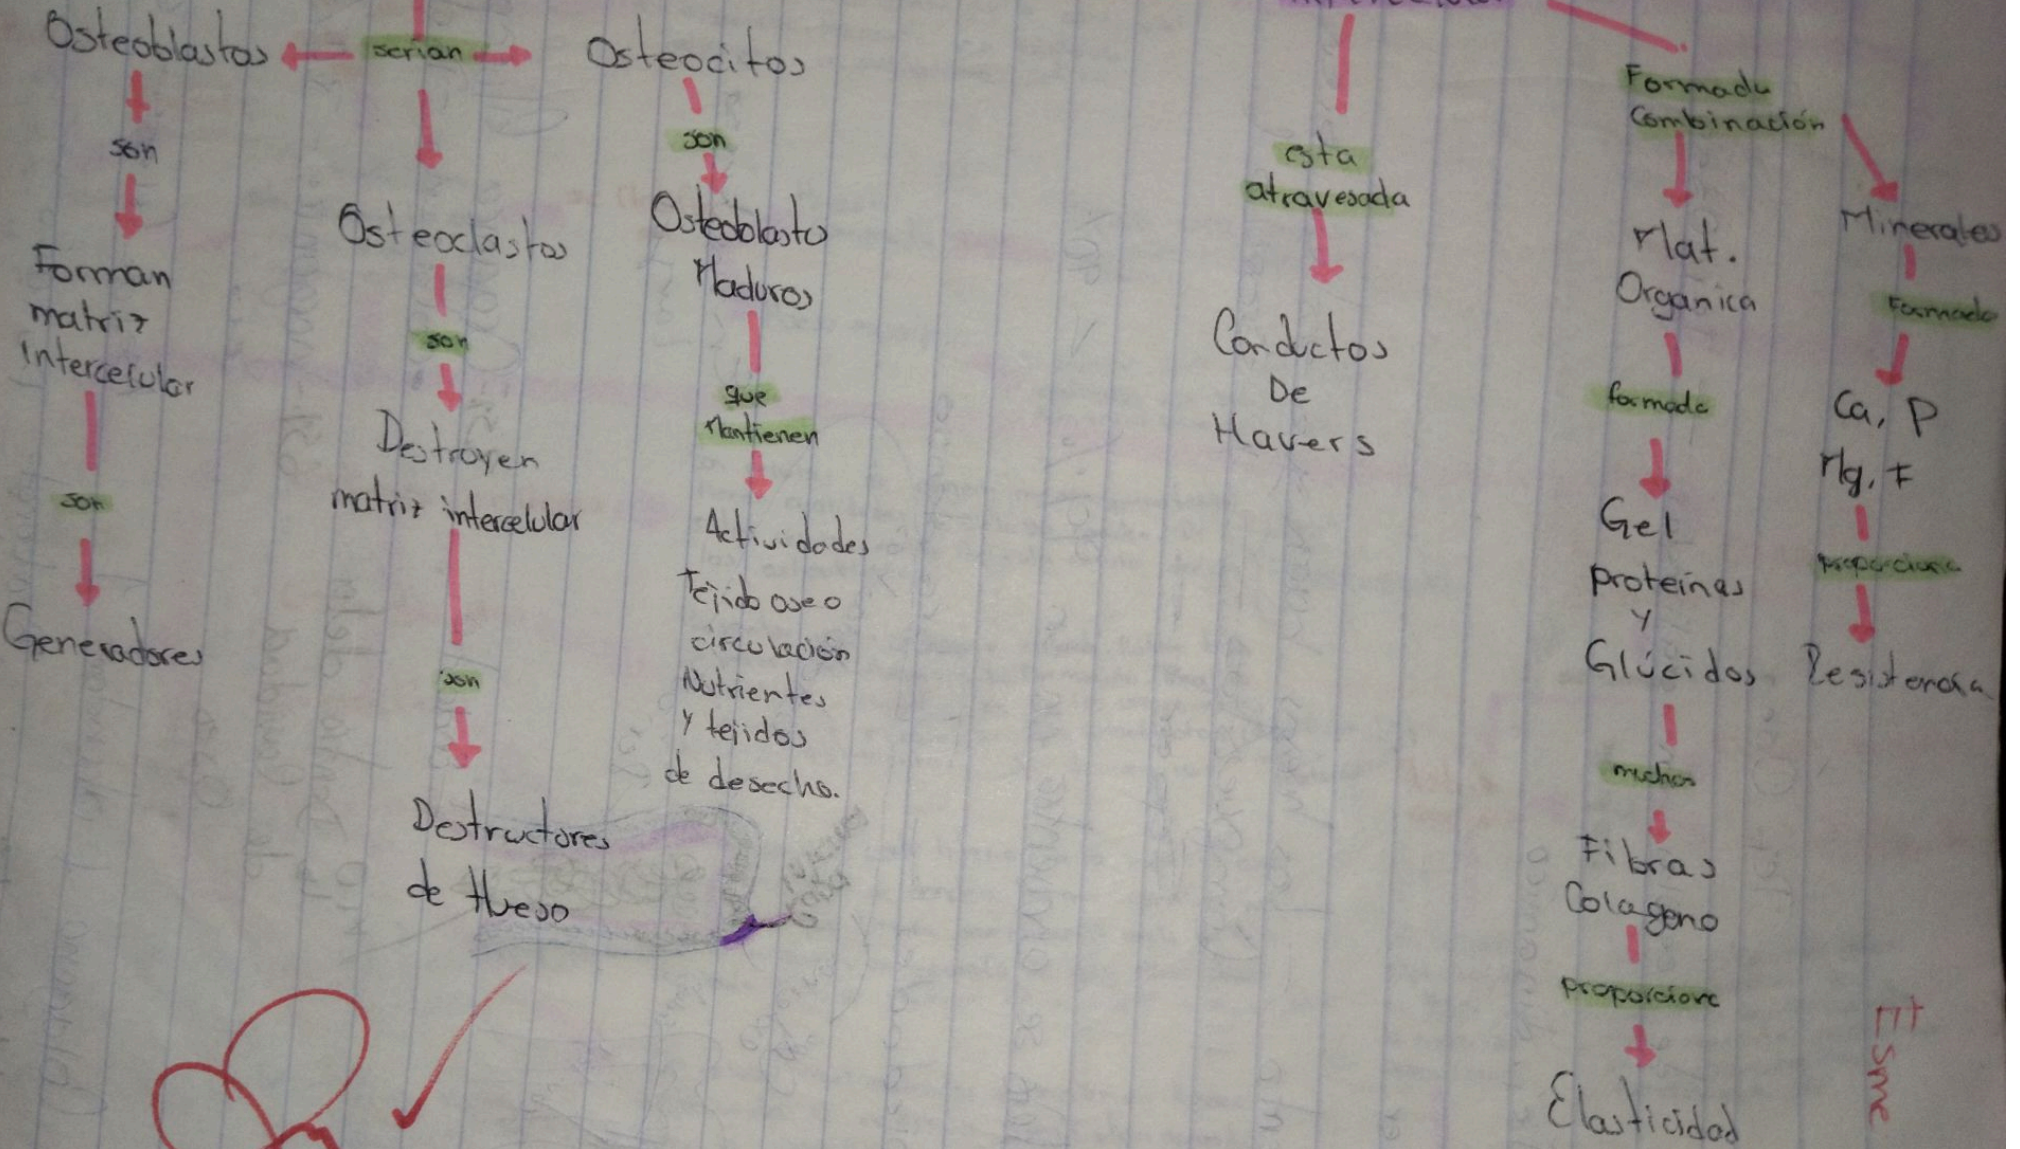 Osteoblastos
serían
Osteocitos
son
Forman
matriz
Intercelular
son
Generadores
Osteoclastos
son
Destroyen
matriz intercelular
son
Destructores
de Hueso
son
Osteoblasto
Maduros
que
Mantienen
Actividades
Tejido oseo
circulación
Nutrientes
y tejidos
de desecho.
esta
atravesada
Conductos
De
Havers
Formada
Combinación
Mat.
Organica
formada
Gel
proteínas
y
Glúcidos
muchas
Fibras
Colageno
proporciona
Elasticidad
Minerales
Formado
Ca, P
Mg, F
proporciona
Resistencia
Esme